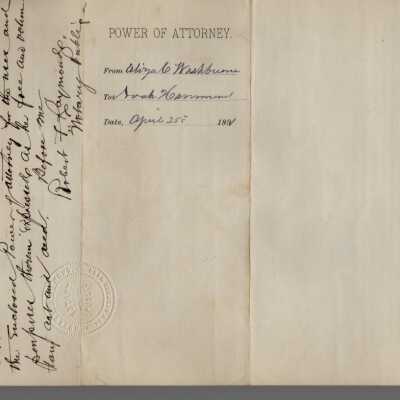 POWER OF ATTORNEY.
From Eliza C Washburne
To
Date, April 25 1891
the enclosed Power of attorney for the uses and
purposes therein expressed as the free and volun
tary act and deed. Before me
Robert L Raymond,
Notary Public